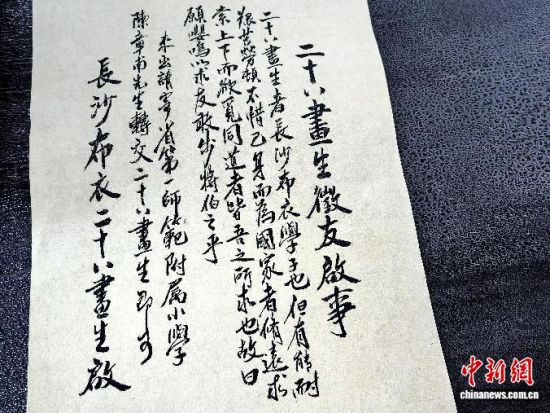 二十八畫生徵友啟事
二十八畫生者長沙布衣學子也但有能耐
艱苦勞頓不惜己身而為國家者脩遠求
索上下而欲覓同道者皆吾之所求也故曰
願嚶鳴以求友敢步將伯之乎
來函請寄省第一師範附屬小學
陳章甫先生轉交二十八畫生即可
長沙布衣二十八畫生啟
中新网
chinanews.com.cn